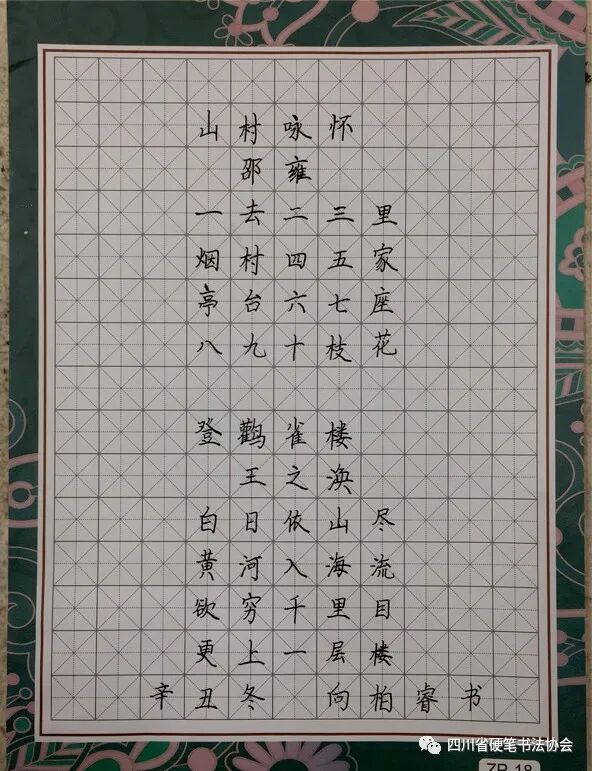 山村咏怀
邵雍
一去二三里
烟村四五家
亭台六七座
八九十枝花
登鹳雀楼
王之涣
白日依山尽
黄河入海流
欲穷千里目
更上一层楼
辛丑冬 向柏睿书
四川省硬笔书法协会
ZP-18